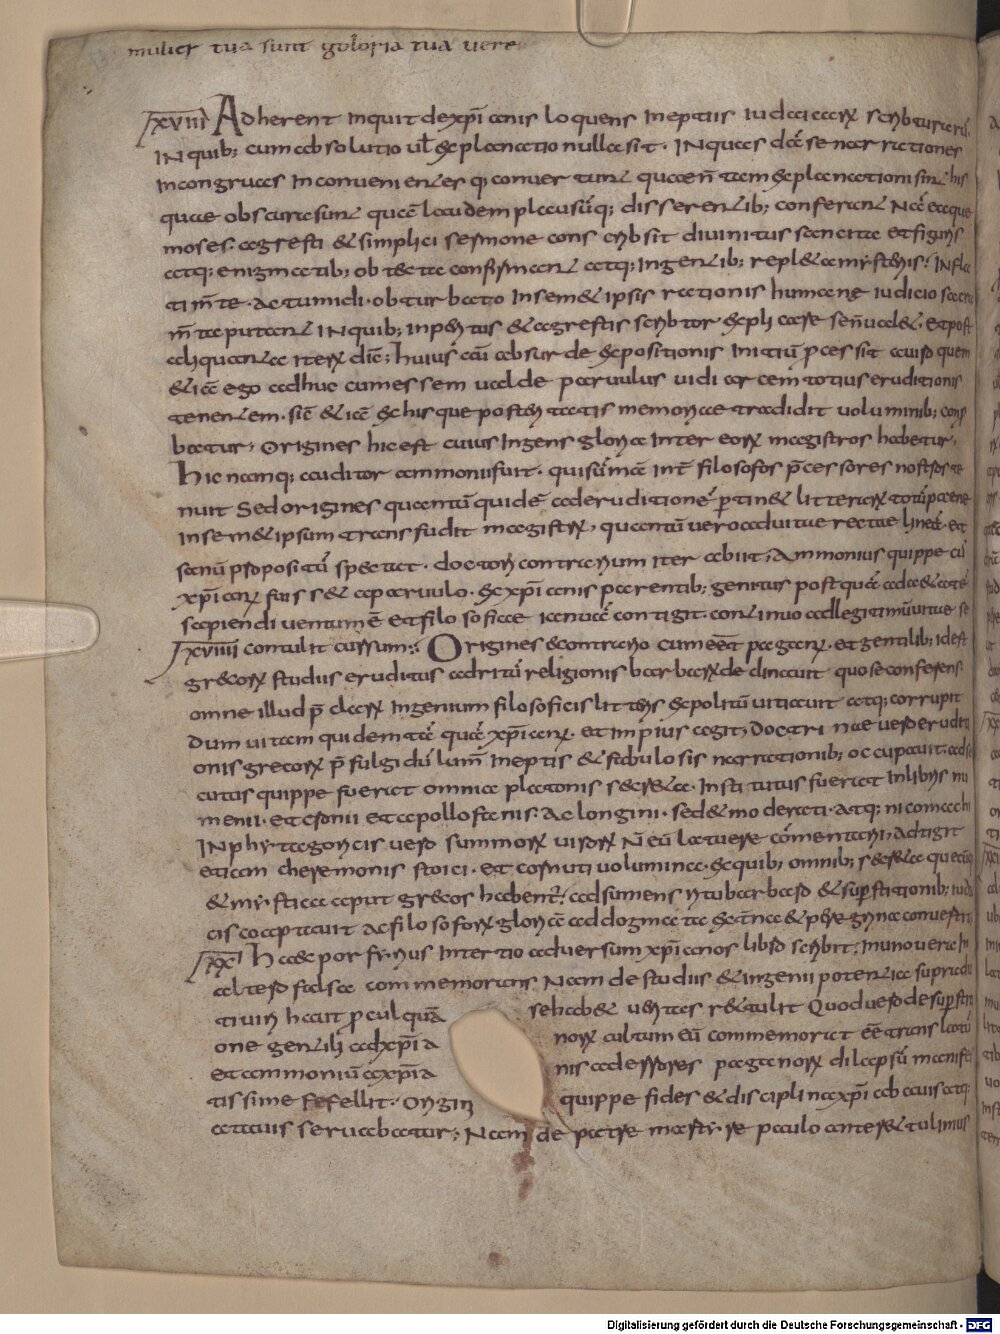 mulier tua sunt goloria tua uere
xviii Adherent inquit de xpianis loquens ineptiis iudaicarꝝ scribturarū
IN quib; cum absolutio uƚ explanatio nulla sit. IN quas dā se narrationes
incongruas inconuenientes q; conuertunt quae ñ tam explanationi sint his
quae obscurae sunt quā laudem plausūq; disserentib; conferant Nā ea quae
moses agresti & simplici sermone conscribsit diuinitus sancita et figuris
atq; enigmatib; obtecta confirmant atq; ingentib; repleta mysteriis. Infla
ti mte ac tumidi obturbato in semet ipsis rationis humane iudicio sacra
mta putant IN quib; inperitus & agrestis scribtor explicare se ñ ualet. Et post
aliquanta iterꝝ dic; huius aū absurde expositionis initiū pcessit a uiro quem
& iā ego adhuc cum essem ualde paruulus uidi arcem totius eruditionis
tenentem. sic & iā ex his que posteritatis memoriae tradidit uoluminib; conp
batur. Origines hic est cuius ingens gloria inter eorꝝ magistros habetur.
hic namq; auditor ammonii fuit. qui sūma int filosofos p̄cessores nostros te
nuit Sed origines quantū quidē ad eruditionē pertinet litterarꝝ totū paene
in semet ipsum transfudit magistrꝝ, quantū uero ad uitae rectae lineā et
sanū propositū spectat. doctori contrarium iter abiit; Ammonius quippe cū
xpianꝝ fuisset a paruulo. & xpianis parentib; genitus postquā ad aetatē
sapiendi uentum ē et filosoficae ianuā contigit. continuo ad legitimū uitae se
xviiii contulit cursum; Origines e contrario cum eēt paganꝝ et gentilib; id est
grecorꝝ studiis eruditus ad ritū religionis barbarꝝ declinauit quo se conferens
omne illud p̄clarꝝ ingenium filosoficis litteris expolitū uitiauit atq; corrupit
dum uitam quidem tā quā xpianꝝ et impius egit; Doctrinae uero erudi
onis grecorꝝ p̄fulgidū lum̄ ineptis & fabulosis narrationib; occupauit.
catus quippe fuerat omnia platonis secreta. Institutus fuerat in libris nu
menii et cronii et apollofanis. Ac longini. sed & moderati. Atq; nicomachi
IN phytagoricis uero summorꝝ uirorꝝ N eū latuere cōmentarii, Adtigit
etiam cheremonis stoici et cornuti uolumina. Ex quib; omnib; secreta quaecūq;
& mystica aput grecos habent; adsumens ritu barbaro & superstitionib; iuda
cis coaptauit ac filosoforꝝ gloriā ad dogmata extranea & peregrina conuertit
xx haec porfyrius in tertio aduersum xpianos libro scribit; in uno uera hi
altero falsa commemorans Nam de studiis & ingenii potentia supradic
ti uiri haut procul quā se habet ueritas retulit Quod uero de superstiti
one gentili ad xpia norꝝ cultum eū commemorat eē translatū
et ammoniū a xpia nis ad errores paganorꝝ dilapsū manifes
tissime fefellit. Origin quippe fides & disciplina xpi ab auis atq;
atauis seruabatur; Nam de patre martyre paulo ante rettulimus
Digitalisierung gefördert durch die Deutsche Forschungsgemeinschaft - DFG